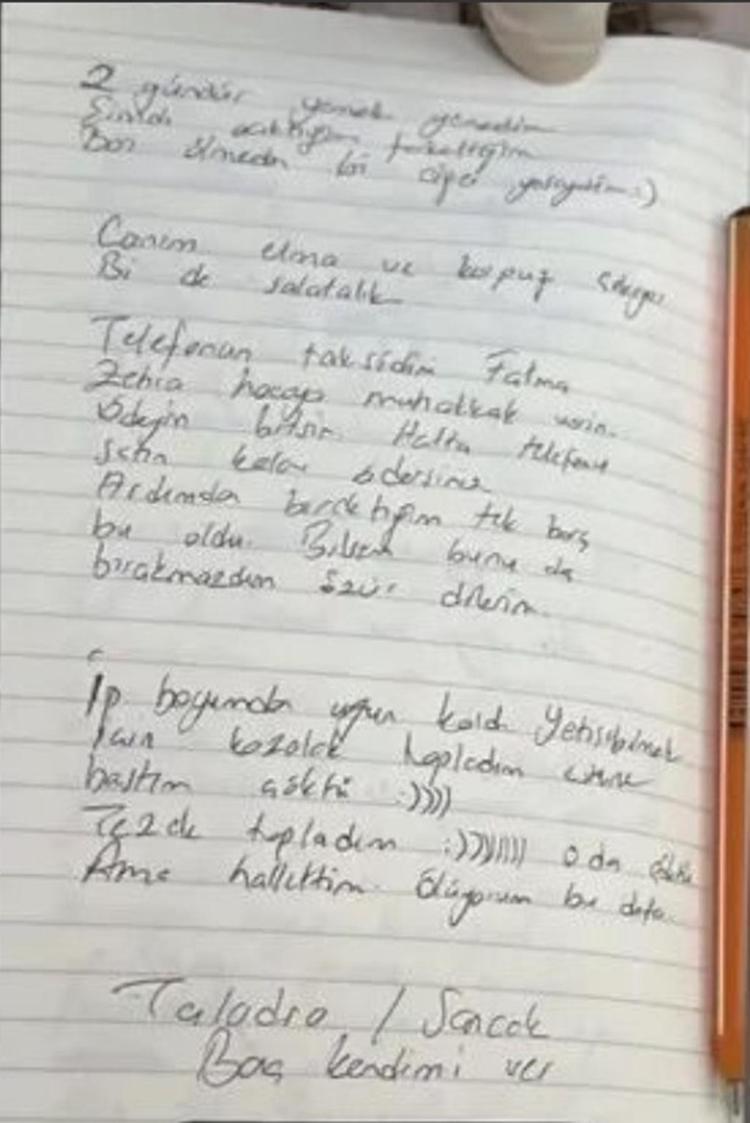 2 gündür yemek yemedim
Şimdi acıktığım
Ben ölmeden bi yaşıyorum :)
Canım elma ve karpuz çekiyor
Bi de salatalık
Telefonun taksidini Fatma
Zehra hocaya muhakkak verin.
Ödeyin bitsin. Hatta telefonu
satın kalanı ödersiniz
Ardımda bıraktığım tek borç
bu oldu. Bilsem bunu da
bırakmazdım özür dilerim.
İp boyumdan uzun kaldı Yetişebilmek
için kozalak topladım üzerine
bastım çöktü :))))
Tezek topladım :)))))))) o da çöktü
Ama hallettim. Ölüyorum bu defa.
Taladro / Sancak
Baş kendimi ver